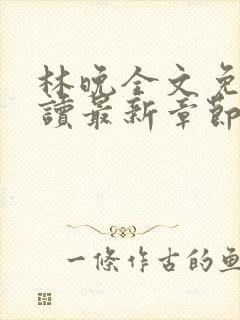 林晚全文免
讀最新章節
一條作古的魚